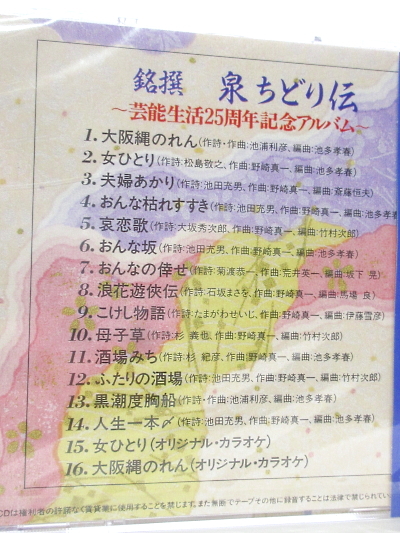 銘撰 泉ちどり伝
～芸能生活25周年記念アルバム～
1. 大阪縄のれん(作詩・作曲:池浦利彦、編曲:池多孝春)
2. 女ひとり(作詩:松島敬之、作曲:野崎真一、編曲:池多孝春)
3. 夫婦あかり(作詩:池田充男、作曲:野崎真一、編曲:斎藤恒夫)
4. おんな枯れすすき(作詩:池田充男、作曲:野崎真一、編曲:池多孝春
5. 哀恋歌(作詩:大坂秀次郎、作曲:野崎真一、編曲:竹村次郎)
6. おんな坂(作詩:池田充男、作曲:野崎真一、編曲:池多孝春)
7. おんなの倖せ(作詩:菊渡恭一、作曲:荒井英一、編曲:坂下 晃)
8. 浪花遊俠伝(作詩:石坂まさを、作曲:野崎真一、編曲:馬場 良)
9. こけし物語(作詩:たまがわせいじ、作曲:野崎真一、編曲:伊藤雪彦)
10. 母子草(作詩:杉 義也、作曲:野崎真一、編曲:竹村次郎)
11. 酒場みち(作詩:杉 紀彦、作曲:野崎真一、編曲:池多孝春)
12. ふたりの酒場(作詩:池田充男、作曲:野崎真一、編曲:竹村次郎)
13. 黒潮度胸船(作詩・作曲:池浦利彦、編曲:池多孝春)
14. 人生一本〆(作詩:池田充男、作曲:野崎真一、編曲:池多孝春)
15. 女ひとり(オリジナル・カラオケ)
16. 大阪縄のれん(オリジナル・カラオケ)
CDは権利者の許諾なく賃貸業に使用することを禁じます。また無断でテープその他に録音することは法律で禁じられてい